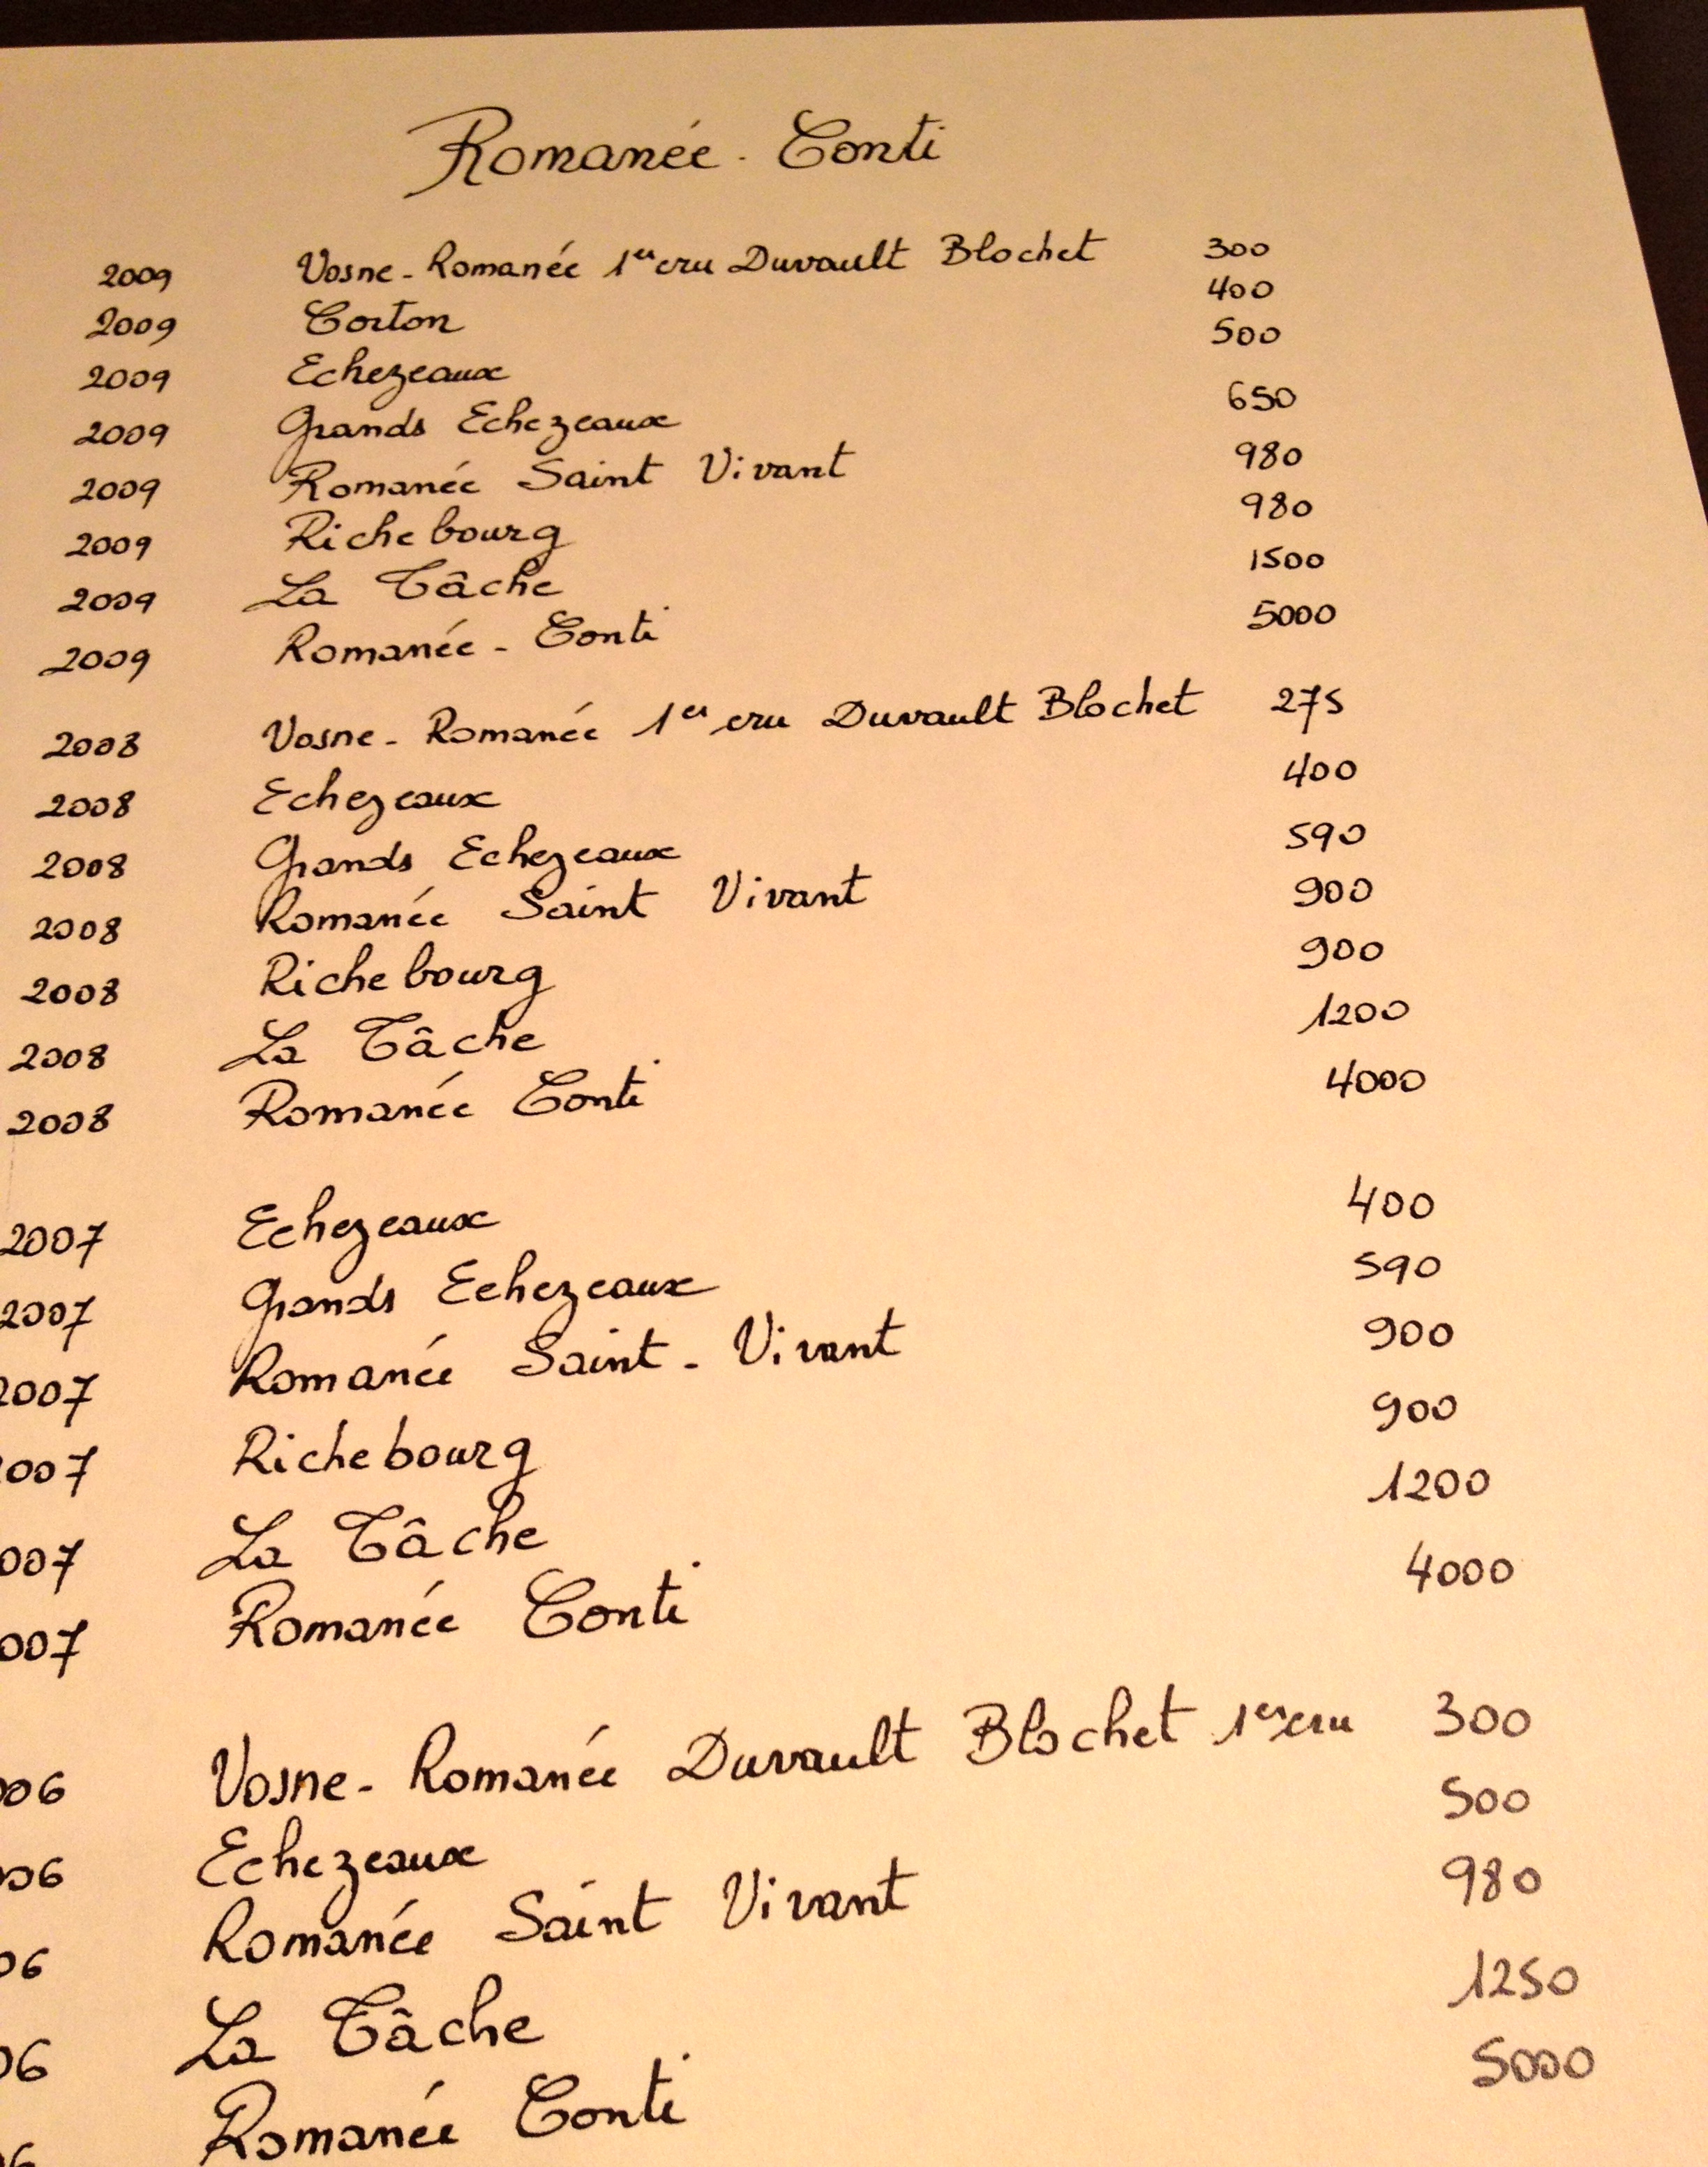 Romanée-Conti
2009 Vosne-Romanée 1er cru Duvault Blochet 300
2009 Corton 400
2009 Echezeaux 500
2009 Grands Echezeaux 650
2009 Romanée Saint Vivant 980
2009 Richebourg 980
2009 La Tâche 1500
2009 Romanée-Conti 5000
2008 Vosne-Romanée 1er cru Duvault Blochet 275
2008 Echezeaux 400
2008 Grands Echezeaux 590
2008 Romanée Saint Vivant 900
2008 Richebourg 900
2008 La Tâche 1200
2008 Romanée Conti 4000
2007 Echezeaux 400
2007 Grands Echezeaux 590
2007 Romanée Saint-Vivant 900
007 Richebourg 900
007 La Tâche 1200
007 Romanée Conti 4000
06 Vosne-Romanée Duvault Blochet 1er cru 300
06 Echezeaux 500
06 Romanée Saint Vivant 980
06 La Tâche 1250
6 Romanée Conti 5000